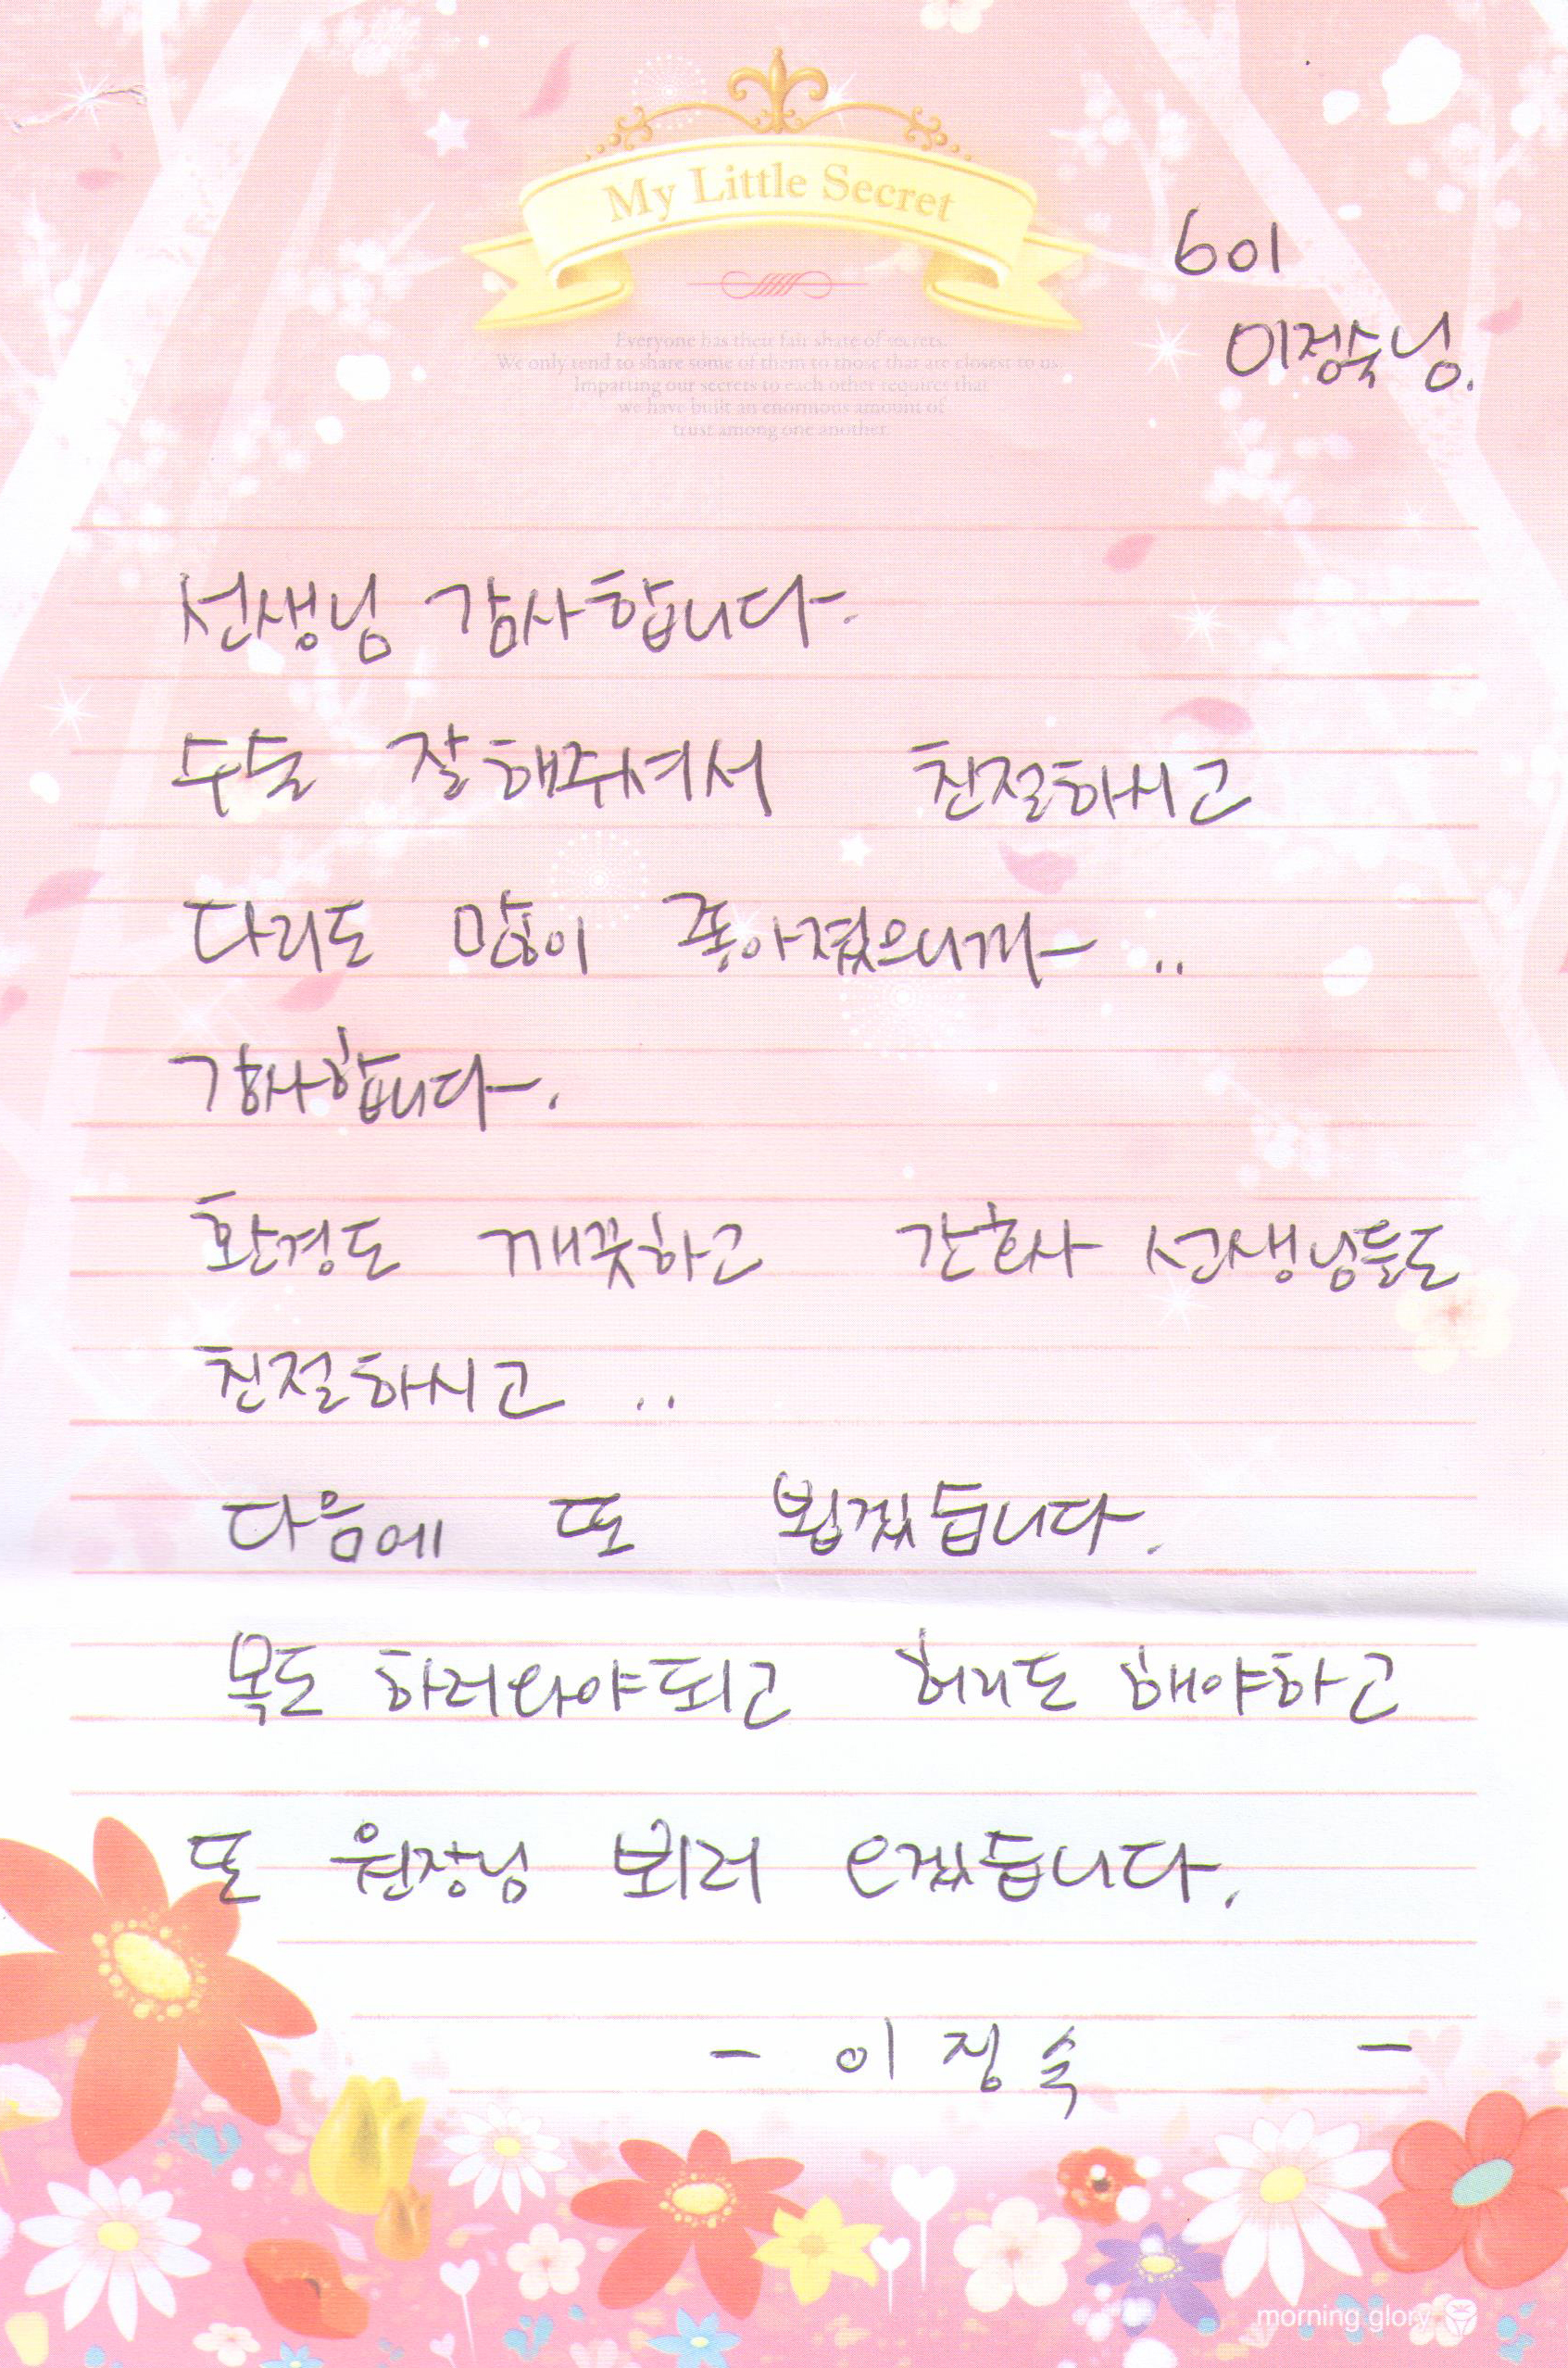 My Little Secret
601
이정숙님.
Everyone has their fair share of secrets.
We only tend to share some of them to those that are closest to us.
Imparting our secrets to each other requires that
we have built an enormous amount of
trust among one another.
선생님 감사합니다.
수술 잘해주셔서 친절하시고
다리도 많이 좋아졌으니까 ..
감사합니다.
환경도 깨끗하고 간호사 선생님들도
친절하시고 ..
다음에 또 뵙겠습니다.
목도 하러와야되고 허리도 해야하고
또 원장님 뵈러 오겠습니다.
- 이정숙 -
morning glory